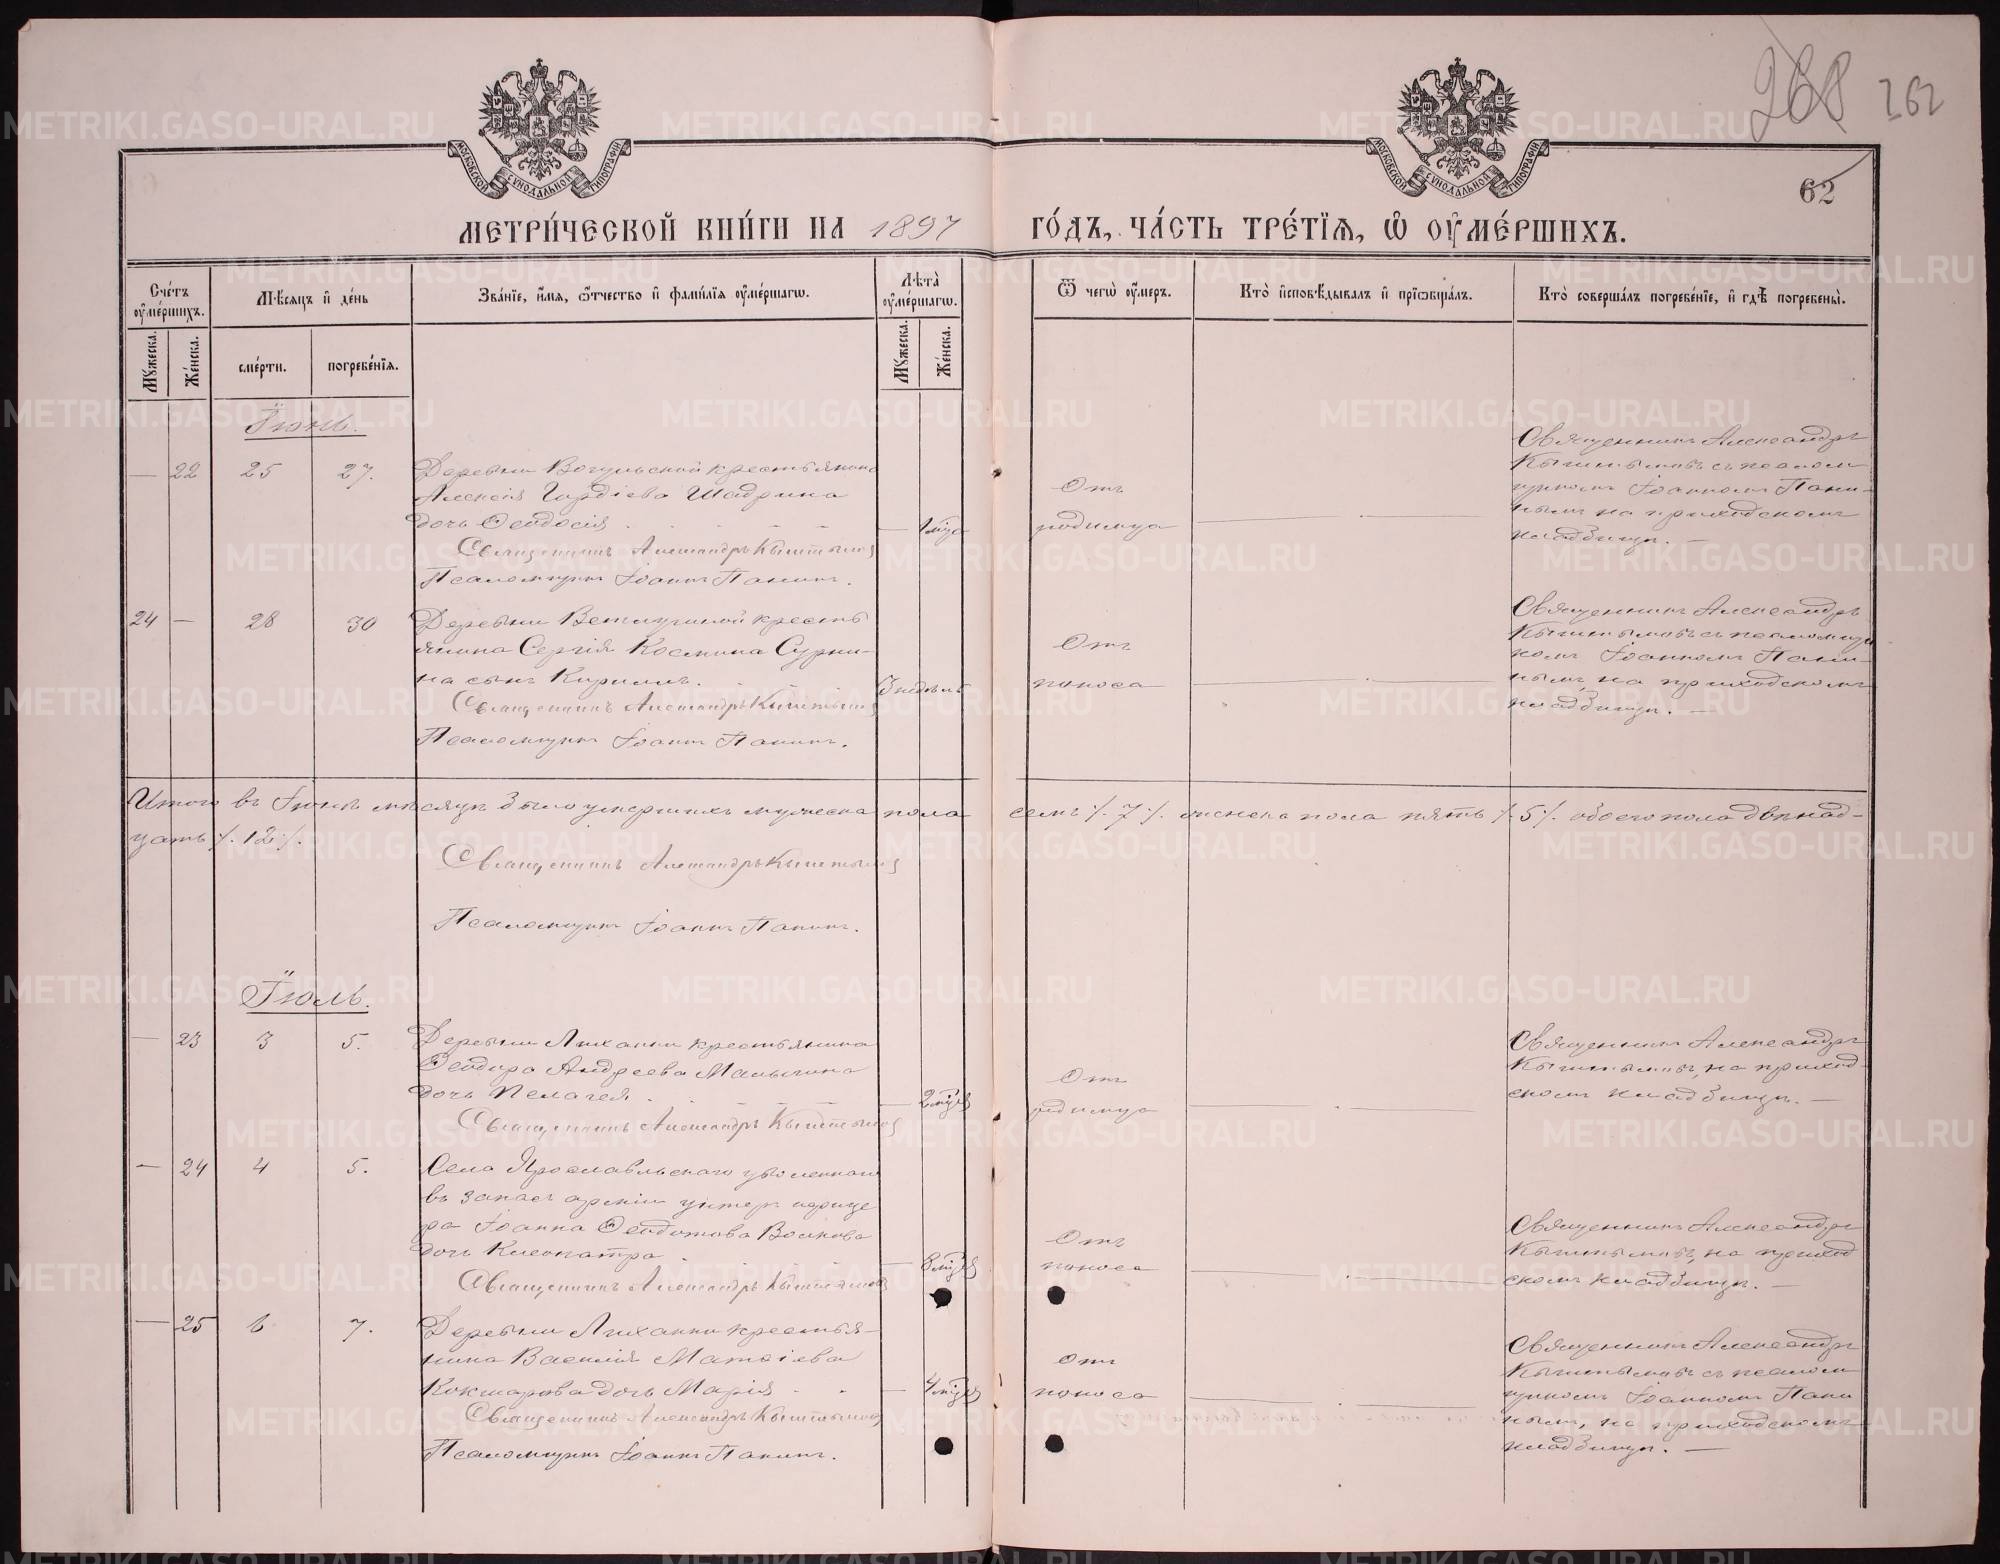 268 262
МОСКОВСКОЙ СѴНОДАЛЬНОЙ ТИПОГРАФІИ
МОСКОВСКОЙ СѴНОДАЛЬНОЙ ТИПОГРАФІИ
62
МЕТРИ́ЧЕСКОЙ КНИ́ГИ НА 1897 ГО́ДЪ, ЧА́СТЬ ТРЕ́ТЇѦ, Ѽ ОУ҆МЕ́РШИХЪ.
Сче́тъ оу҆ме́ршихъ.
Мꙋжеска.
Же́нска.
Мѣ́сѧцъ и҆ де́нь
сме́рти.
погребе́нїѧ.
Зва́нїе, и҆́мѧ, ѻ҆́тчество и҆ фами́лїѧ оу҆ме́ршагѡ.
Лѣ́та оу҆ме́ршагѡ.
Мꙋжеска.
Же́нска.
Ѿ чегѡ̀ оу҆́меръ.
Кто̀ и҆сповѣ́дывалъ и҆ прїѡбща́лъ.
Кто̀ соверша́лъ погребе́нїе, и҆ гдѣ̀ погребены̀.
Іюнь.
— 22 25 27.
Деревни Вогульской крестьянина
Алексія Гордіева Шадрина
дочь Ѳеодосія — 1 мца
Священникъ Александръ Кыштымовъ
Псаломщикъ Іоаннъ Панинъ.
Отъ
родимца
Священникъ Александръ
Кыштымовъ съ псалом
щикомъ Іоанномъ Пани-
нымъ на приходскомъ
кладбищѣ. —
24 — 28 30
Деревни крестья
янина Сергія Космина Сурни-
на сынъ Кириллъ. 3 недѣль
Священникъ Александръ Кыштымовъ
Псаломщикъ Іоаннъ Панинъ.
Отъ
поноса
Священникъ Александръ
Кыштымовъ съ псаломщи
комъ Іоанномъ Пани-
нымъ, на приходскомъ
кладбищѣ. —
Итого въ Іюнѣ мѣсяцѣ было умершихъ мужеска пола семь /. 7 /. женска пола пять /. 5 /. обоего пола двѣнад-
цать /. 12 /.
Священникъ Александръ Кыштымовъ
Псаломщикъ Іоаннъ Панинъ.
Іюль.
— 23 3 5.
Деревни Лиханки крестьянина
Ѳеодора Андреева Малыгина
дочь Пелагея — 2 мця
Священникъ Александръ Кыштымовъ
Отъ
родимца
Священникъ Александръ
Кыштымовъ, на приход-
скомъ кладбищѣ. —
— 24 4 5.
Села Ярославльскаго уволеннаго
въ запасъ арміи унтеръ офице
ра Іоанна Ѳеодотова Волкова
дочь Клеопатра 8 мцевъ
Священникъ Александръ Кыштымовъ
Отъ
поноса
Священникъ Александръ
Кыштымовъ, на приход
скомъ кладбищѣ. —
— 25 6 7.
Деревни Лиханки крестья-
нина Василія Матѳіева
Кокшарова дочь Марія — 4 мцевъ
Священникъ Александръ Кыштымовъ
Псаломщикъ Іоаннъ Панинъ.
отъ
поноса
Священникъ Александръ
Кыштымовъ съ псалом
щикомъ Іоанномъ Пани
нымъ, на приходскомъ
кладбищѣ. —
METRIKI.GASO-URAL.RU